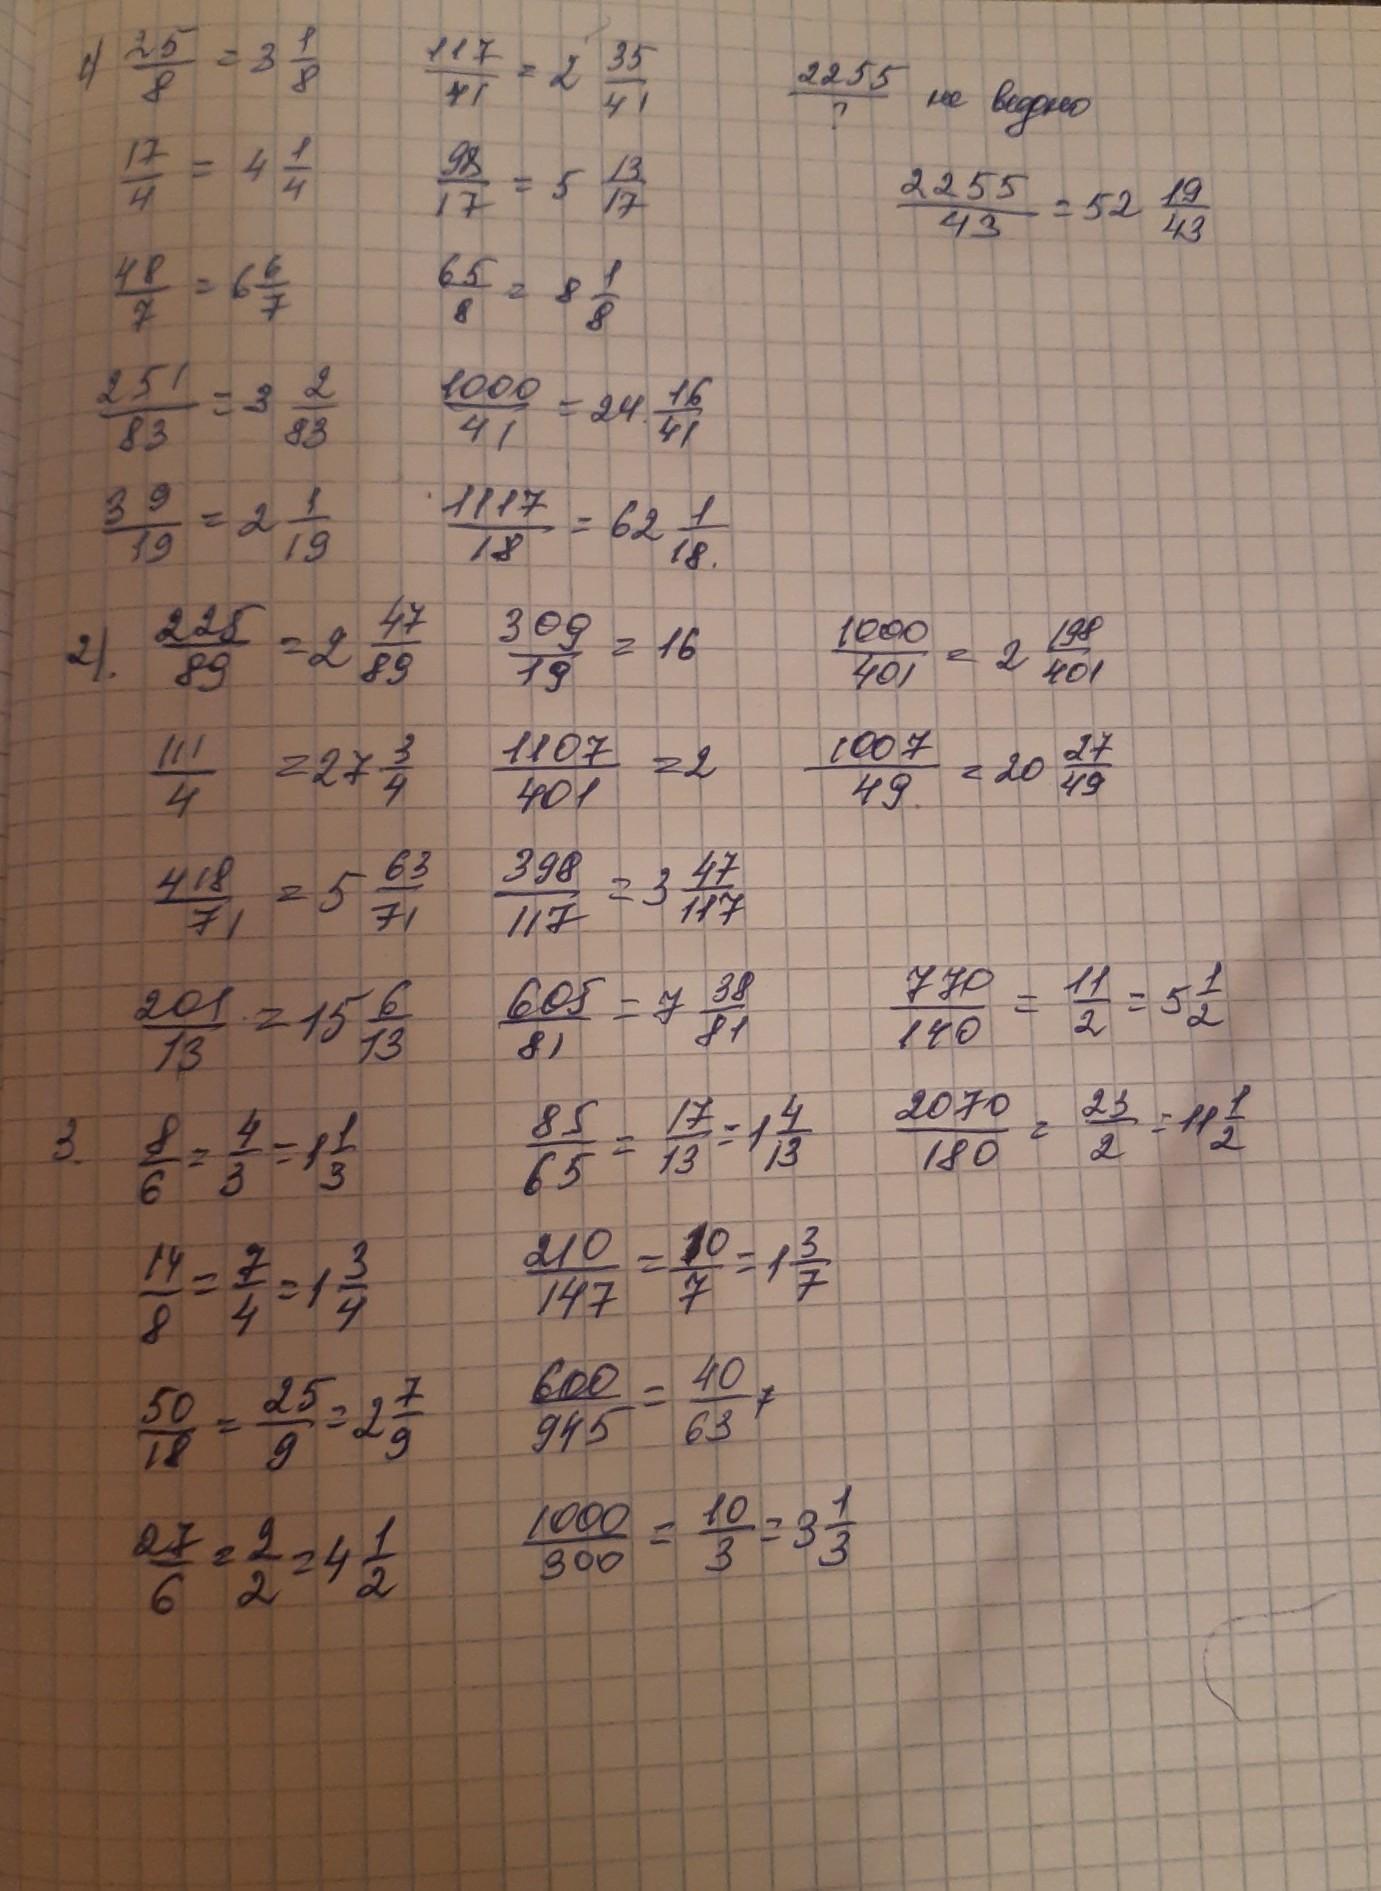 1) 25/8 = 3 1/8 117/41 = 2 35/41 2255/? не видно
17/4 = 4 1/4 98/17 = 5 13/17 2255/43 = 52 19/43
48/7 = 6 6/7 65/8 = 8 1/8
251/83 = 3 2/83 1000/41 = 24 16/41
39/19 = 2 1/19 1117/18 = 62 1/18.
2). 225/89 = 2 47/89 309/19 = 16 1000/401 = 2 198/401
111/4 = 27 3/4 1107/401 = 2 1007/49 = 20 27/49
418/71 = 5 63/71 398/117 = 3 47/117
201/13 = 15 6/13 605/81 = 7 38/81 770/140 = 11/2 = 5 1/2
3. 8/6 = 4/3 = 1 1/3 85/65 = 17/13 = 1 4/13 2070/180 = 23/2 = 11 1/2
14/8 = 7/4 = 1 3/4 210/147 = 10/7 = 1 3/7
50/18 = 25/9 = 2 7/9 600/945 = 40/63
27/6 = 9/2 = 4 1/2 1000/300 = 10/3 = 3 1/3